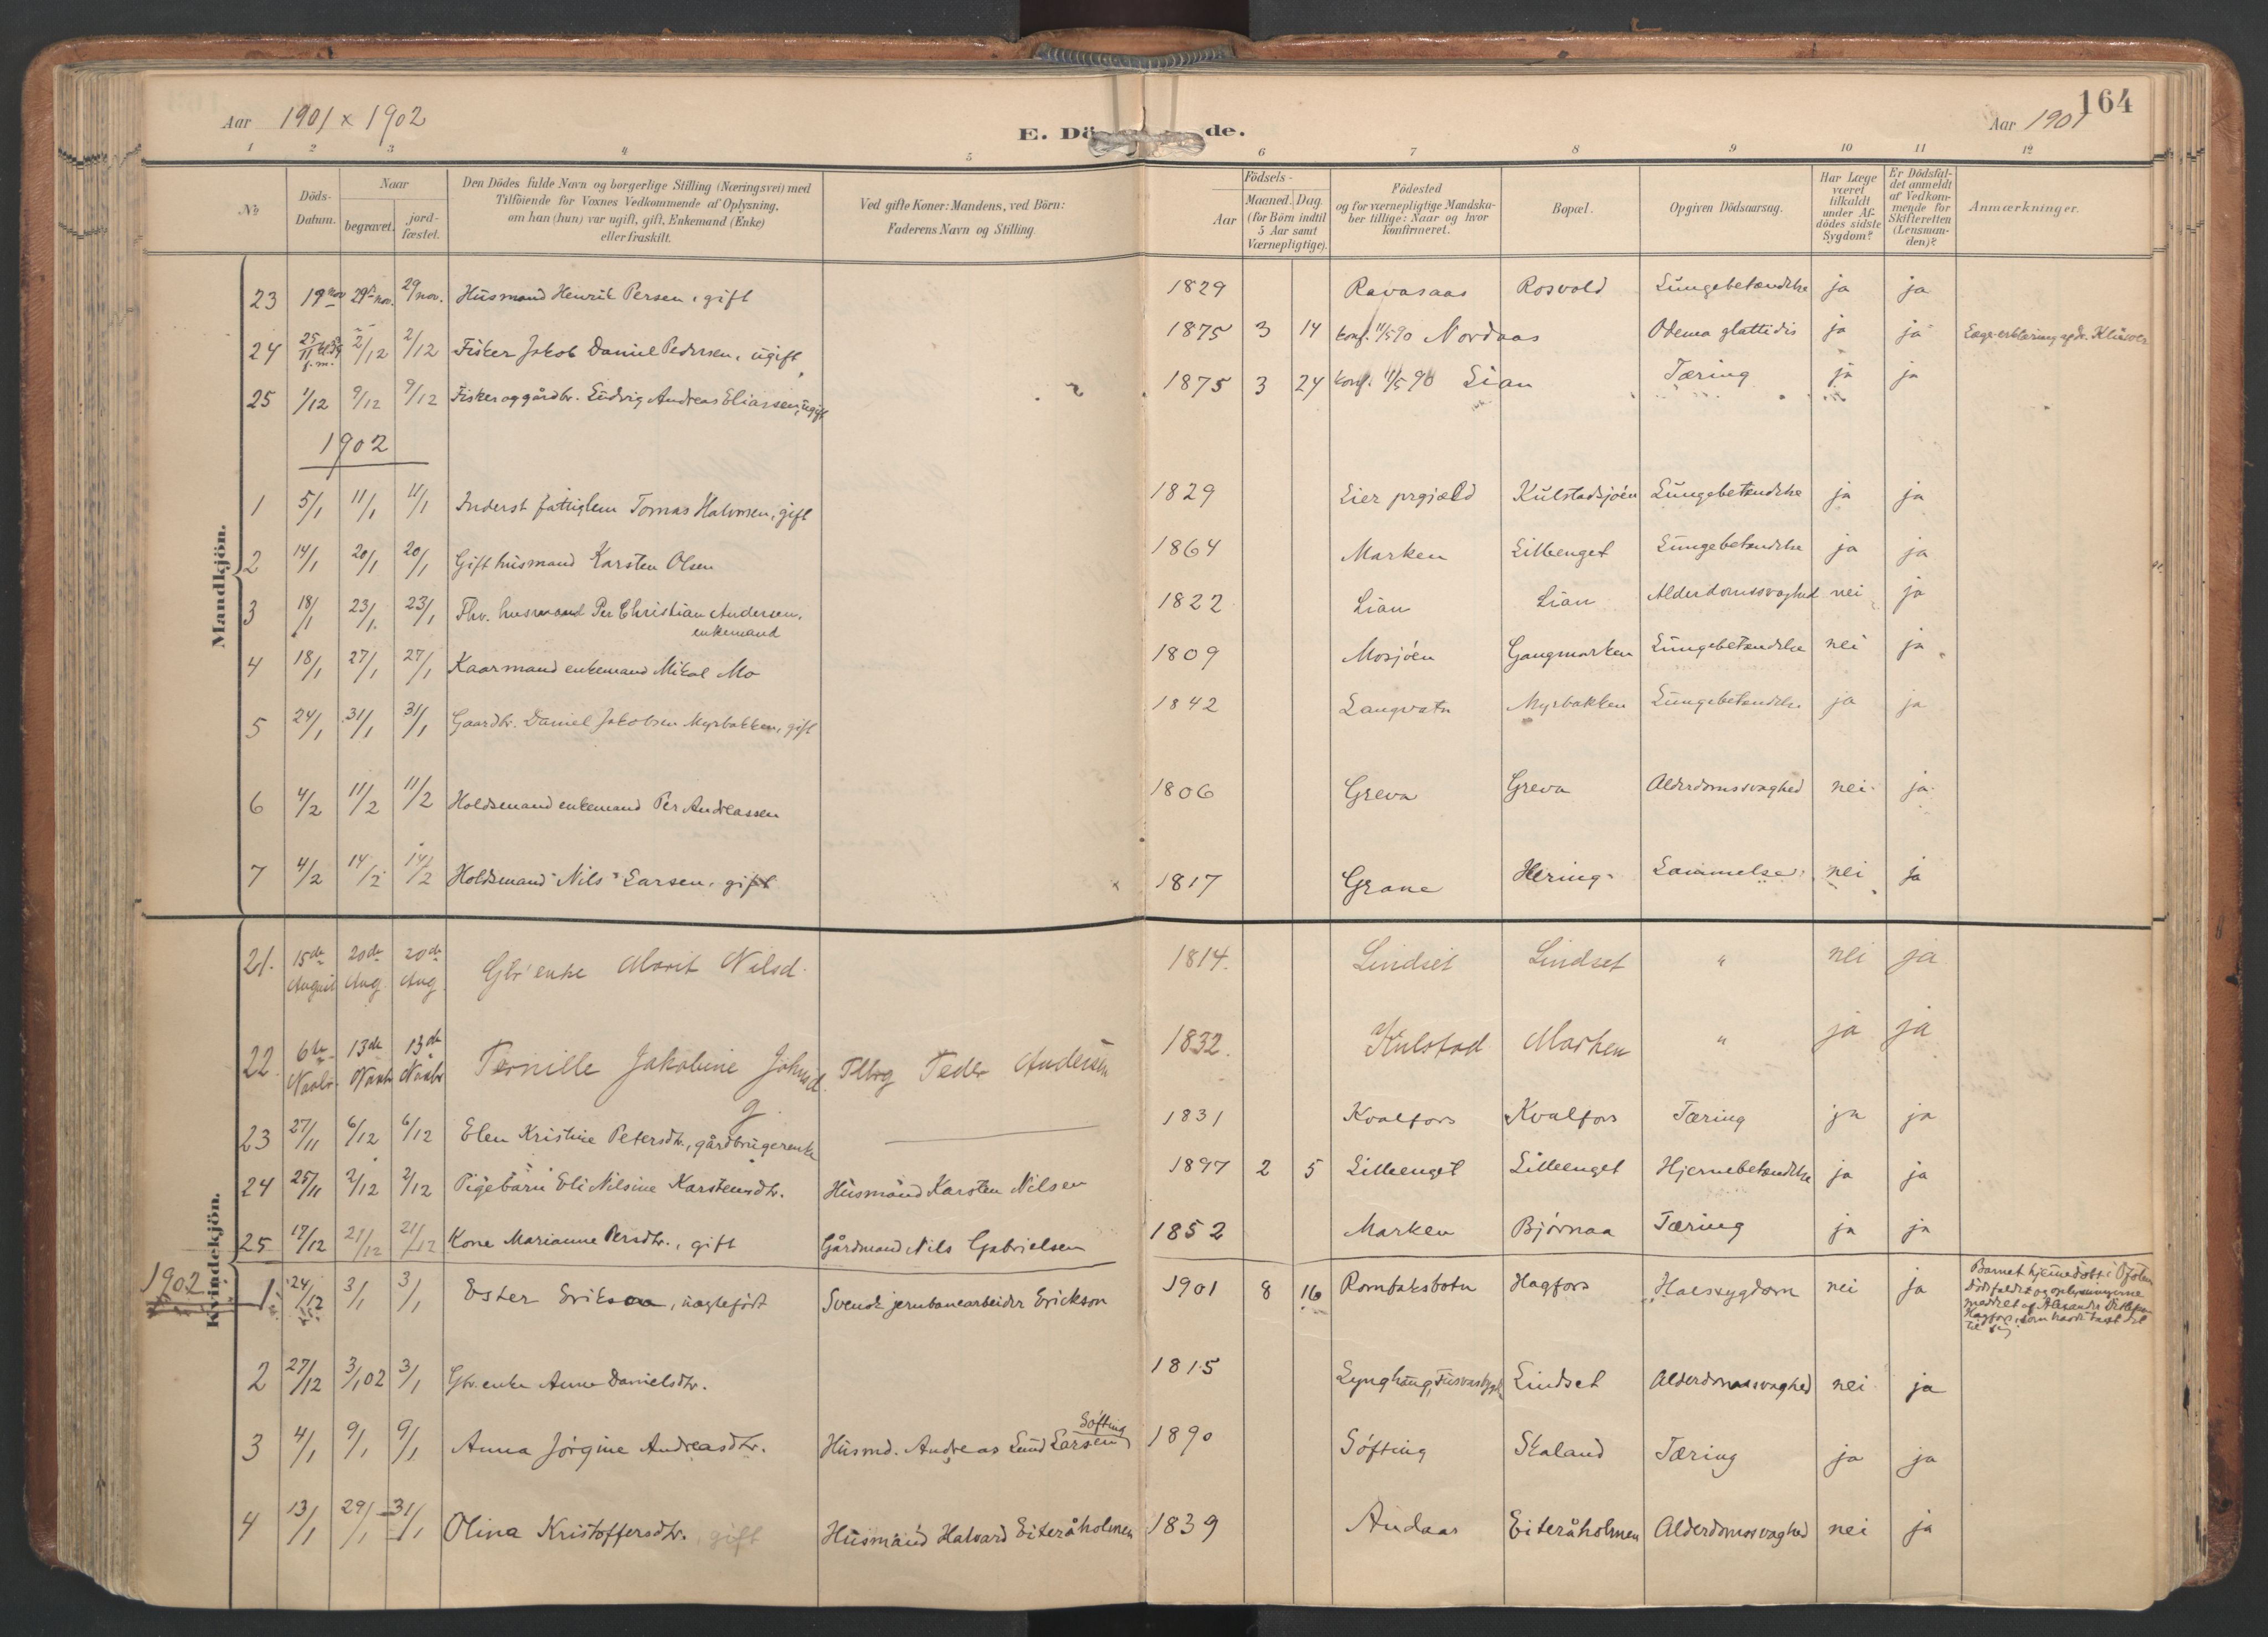 164
Aar 1901 x 1902
E. Dö de.
Aar 1901
1 2 3 4 5 6 7 8 9 10 11 12
No
Döds-Datum.
Naar
begravet.
jord-fæstet.
Den Dödes fulde Navn og borgerlige Stilling (Næringsvei) med
Tilföiende for Voxnes Vedkommende af Oplysning,
om han (hun) var ugift, gift, Enkemand (Enke)
eller fraskilt.
Ved gifte Koner: Mandens, ved Börn:
Faderens Navn og Stilling.
Födsels-
Aar
Maaned. Dag.
(for Börn indtil
5 Aar samt
Værnepligtige).
Födested
og for værnepligtige Mandska-
ber tillige: Naar og hvor
konfirmeret.
Bopæl.
Opgiven Dödsaarsag.
Har Læge
været
tilkaldt
under Af-
dödes sidste
Sygdom?
Er Dödsfal-
det anmeldt
af Vedkom-
mende for
Skifteretten
(Lensman-
den)?
Anmærkninger.
Mandkjön.
23 19 nov 29 nov. 29/nov. Husmand Henrik Persen, gift 1829 Ravasaas Rosvold Lungebetændelse ja ja
24 25/11 f.m. 2/12 2/12 Fisker Jakob Daniel Pedersen, ugift 1875 3 14 konf. 11/5 90 Nordaas Odema glattidis ja ja Læge-erklæring af dr.
25 1/12 9/12 9/12 Fisker og gårdbr. Ludvig Andreas Eliassen, ugift 1875 3 24 konf. 11/5 90 Lian Tæring ja ja
1902
1 5/1 11/1 11/1 Inderst fattiglem Tomas Halvorsen, gift 1829 Lier prgjæld Kulstadsjøen Lungebetændelse ja ja
2 14/1 20/1 20/1 Gift husmand Karsten Olsen 1864 Marken Litleenget Lungebetændelse ja ja
3 18/1 23/1 23/1 Fhv. husmand Per Christian Andersen, enkemand 1822 Lian Lian Alderdomssvaghed nei ja
4 18/1 27/1 27/1 Kaarmand enkemand Mikal Mo 1809 Mosjøen Gangmarken Lungebetændelse nei ja
5 24/1 31/1 31/1 Gaardbr. Daniel Jakobsen Myrbakken, gift 1842 Langvatn Myrbakken Lungebetændelse ja ja
6 4/2 11/2 11/2 Holdsmand enkemand Per Andreassen 1806 Greva Greva Alderdomssvaghed nei ja
7 4/2 14/2 14/2 Holdsmand Nils Larsen, gift 1817 Grane Hering Lammelse nei ja
Kvindekjön.
21. 15de August 20de Aug 20de Aug. Gbr enke Marit Nilsd. 1814. Lindset Lindset " nei ja
22. 6te Novbr. 13de Novbr 13de Novbr Pernille Jakobine Johnsd. g. Peder Andersen 1832. Kulstad Marken " ja ja
23 27/11 6/12 6/12 Elen Kristine Petersdtr., gårdbrugerenke 1831 Kvalfors Kvalfors Tæring ja ja
24 25/11 2/12 2/12 Pigebarn Eli Nilsine Karstensdtr. Husmand Karsten Nilsen 1897 2 5 Litleenget Litleenget Hjernebetændelse ja ja
25 17/12 21/12 21/12 Kone Marianne Persdtr., gift Gårdmand Nils Gabrielsen 1852 Marken Bjørnaa Tæring ja ja
1902
1 24/12 3/1 3/1 Ester Erikson, uægtefødt Svensk jernbanearbeider Erickson 1901 8 16 Romtaksbotn Hagfors Halssygdom nei ja Barnet hjemmedøbt
dödsfaldet og oplysningerne
meddelt af
Hagfors, som havde taget det
til sig
2 27/12 3/1 02 3/1 Gbr. enke Anne Danielsdtr. 1815 Lynghaug, Lindset Alderdomssvaghed nei ja
3 4/1 9/1 9/1 Anna Jörgine Andreasdtr. Husmd. Andreas Lund Larsen Söfting 1890 Söfting Skaland Tæring ja ja
4 13/1 29/1 31/1 Olina Kristoffersdtr., gift Husmand Halvard Eiteråholmen 1839 Andaas Eiteråholmen Alderdomssvaghed nei ja